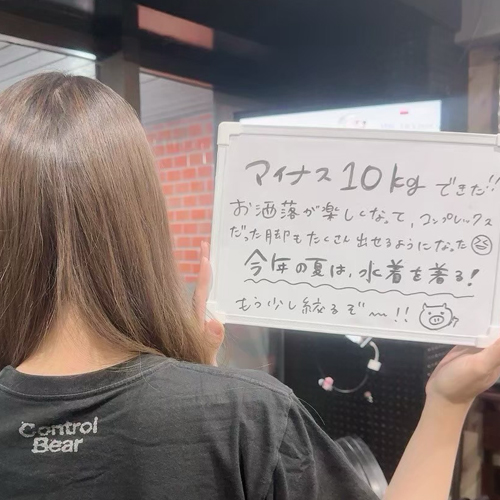 マイナス10kgできた!!
お洒落が楽しくなって,コンプレックス
だった脚もたくさん出せるようになった
今年の夏は、水着を着る!
もう少し絞るぞ〜!!
Control
Bear